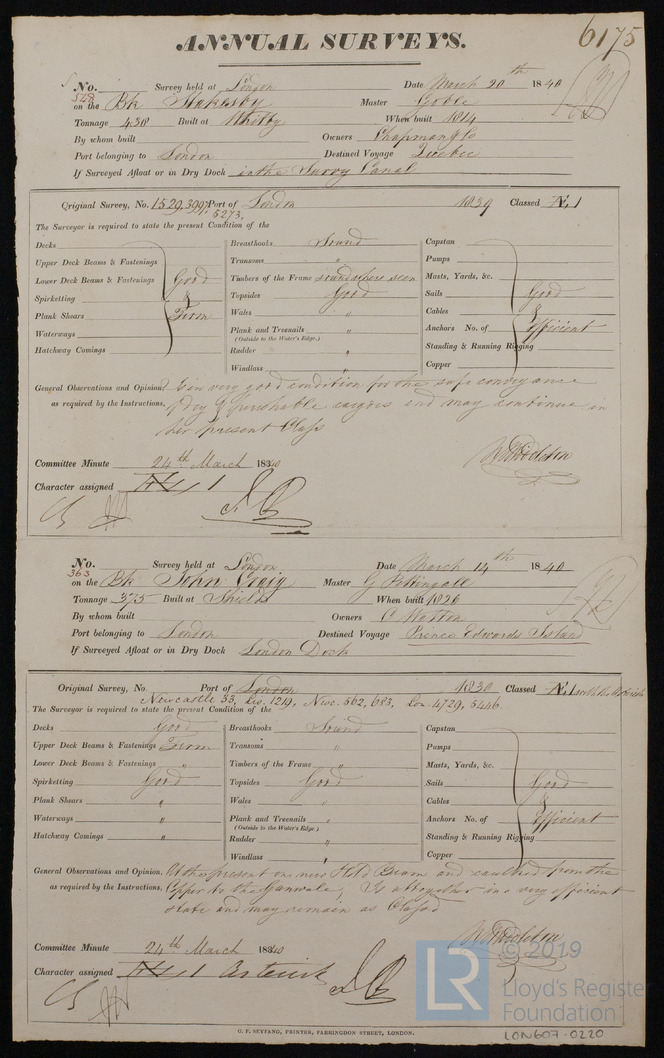 6175
ANNUAL SURVEYS.
No. 548 Survey held at London Date March 20th 1840
on the Bk Stakesby Master Goble
Tonnage 430 Built at Whitby When built 1814
By whom built Owners Chapman & Co
Port belonging to London Destined Voyage Quebec
If Surveyed Afloat or in Dry Dock in the Surry Canal
Original Survey, No. 1529,399, Port of London 1839 Classed Æ,1
5273,
The Surveyor is required to state the present Condition of the
Decks
Upper Deck Beams & Fastenings
Lower Deck Beams & Fastenings Good
Spirketting &
Plank Shears Firm
Waterways
Hatchway Comings
Breasthooks Sound
Transoms "
Timbers of the Frame sound where seen
Topsides Good
Wales "
Plank and Treenails "
(Outside to the Water's Edge.)
Rudder "
Windlass "
Capstan
Pumps
Masts, Yards, &c.
Sails Good
Cables &
Anchors No. of Efficient
Standing & Running Rigging
Copper
General Observations and Opinion, Is in very good condition for the safe conveyance
as required by the Instructions, of Dry & perishable cargoes and may continue in
her present Class
Committee Minute 24th March 1840
Character assigned Æ 1
No. 363 Survey held at London Date March 14th 1840
on the Bk John Craig Master G Pettingall
Tonnage 375 Built at Shields When built 1826
By whom built Owners
Port belonging to London Destined Voyage Prince Edwards Island
If Surveyed Afloat or in Dry Dock London Dock
Original Survey, No. Port of London 1830 Classed Æ,1 with the Asterisk
Newcastle 33, 1219, Newc. 562, 683, Lon. 4729, 5446
The Surveyor is required to state the present Condition of the
Decks Good
Upper Deck Beams & Fastenings Firm
Lower Deck Beams & Fastenings "
Spirketting Good
Plank Shears "
Waterways "
Hatchway Comings "
Breasthooks Sound
Transoms "
Timbers of the Frame "
Topsides Good
Wales "
Plank and Treenails "
(Outside to the Water's Edge.)
Rudder "
Windlass "
Capstan
Pumps
Masts, Yards, &c.
Sails Good
Cables &
Anchors No. of Efficient
Standing & Running Rigging
Copper
General Observations and Opinion, Has at present one new Hold Beam and caulked from the
as required by the Instructions, Copper to the Gunwale, Is altogether in a very efficient
state and may remain as Classed
Committee Minute 24th March 1840
Character assigned Æ 1 Asterisk
G. F. SEYFANG, PRINTER, FARRINGDON STREET, LONDON.
LR
© 2019
Lloyd's Register
Foundation
LON607-0220